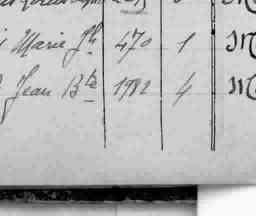 Marie Jh 470 1 M
Jean Bte 1982 4 M